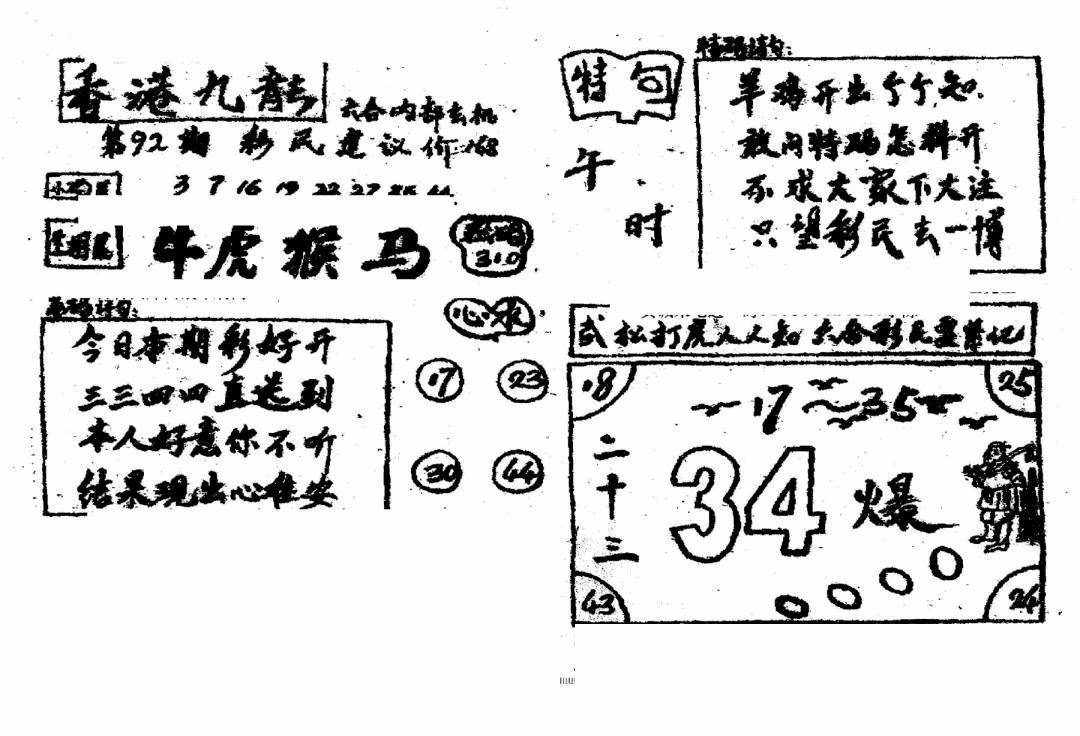 香港九龍
六合内部玄机
第92期 彩民建议价168
3 7 16 19 22 27 35 44
牛虎猴马
310
今日本期彩好开
三三四四直送到
本人好意你不听
结果现出心难安
心水
17 23
30 44
特句
午时
特码诗句:
羊鸡开出个个知
敢问特码怎料开
不求大家下大注
只望彩民去一博
武松打虎人人知 六合彩民要牢记
18 25
17 35
二十三
34 爆
43 24